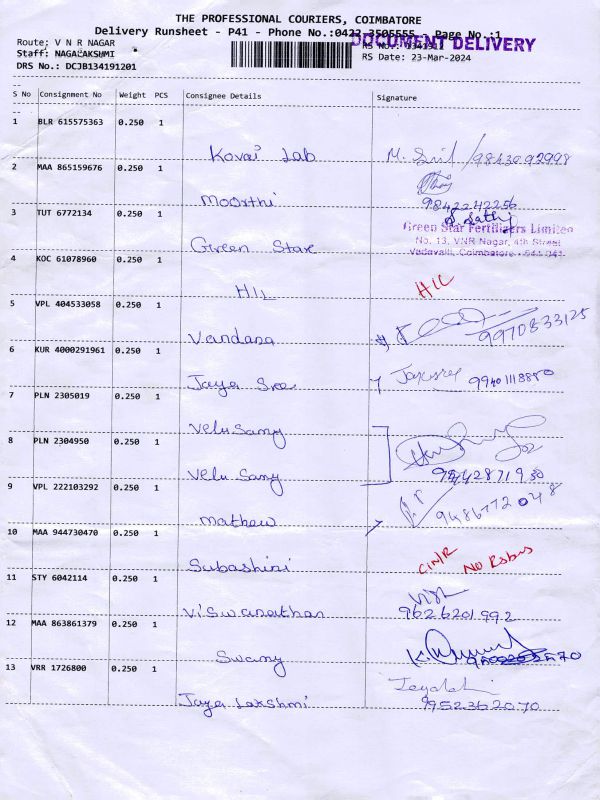 THE PROFESSIONAL COURIERS, COIMBATORE
Delivery Runsheet - P41 - Phone No.:0422-3505555 - Page No.:1
DOCUMENT DELIVERY
Route: V N R NAGAR
RS No.: 1341912
Staff: NAGALAKSHMI
RS Date: 23-Mar-2024
DRS No.: DCJB134191201
S No Consignment No Weight PCS Consignee Details Signature
1 BLR 615575363 0.250 1
Kovai Lab 9843092998
2 MAA 865159676 0.250 1
Moorthi 9842242256
3 TUT 6772134 0.250 1
S. Sathi
Green Star Fertilizers Limited
No. 13, VNR Nagar, 4th Street
Vadavalli, Coimbatore - 641 041
Green Star
4 KOC 61078960 0.250 1
HIL HIL
5 VPL 404533058 0.250 1
Vandana 9970833125
6 KUR 4000291961 0.250 1
Jaya Sree Jayasree 9940118880
7 PLN 2305019 0.250 1
Velu Samy
8 PLN 2304950 0.250 1
Velu Samy
9 VPL 222103292 0.250 1
Mathew 9486772048
10 MAA 944730470 0.250 1
Subashini No
11 STY 6042114 0.250 1
Viswanathan 9626201992
12 MAA 863861379 0.250 1
Swamy
13 VRR 1726800 0.250 1
Jaya Lakshmi 9952362070